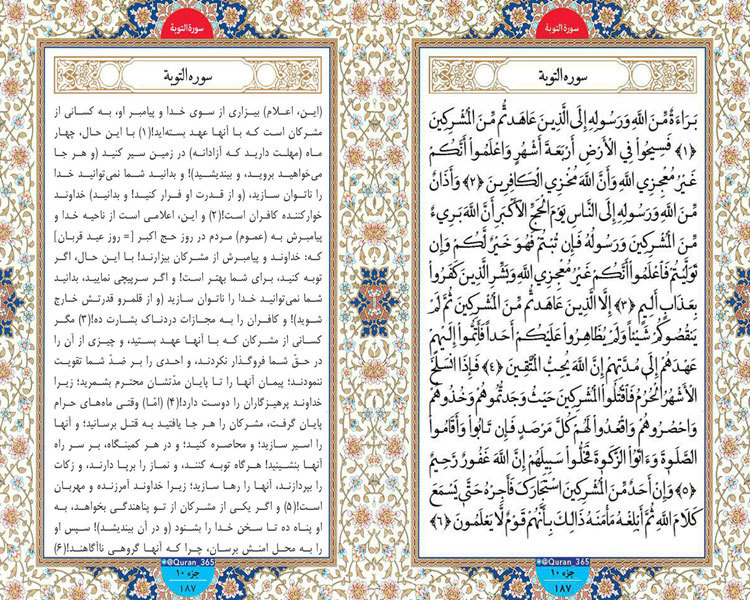 سورة التوبة
سوره التوبة
بَرَاءَةٌ مِّنَ اللَّهِ وَرَسُولِهِ إِلَى الَّذِينَ عَاهَدتُّم مِّنَ الْمُشْرِكِينَ
﴿١﴾ فَسِيحُوا فِي الْأَرْضِ أَرْبَعَةَ أَشْهُرٍ وَاعْلَمُوا أَنَّكُمْ
غَيْرُ مُعْجِزِي اللَّهِ وَأَنَّ اللَّهَ مُخْزِي الْكَافِرِينَ ﴿٢﴾ وَأَذَانٌ
مِّنَ اللَّهِ وَرَسُولِهِ إِلَى النَّاسِ يَوْمَ الْحَجِّ الْأَكْبَرِ أَنَّ اللَّهَ بَرِيءٌ
مِّنَ الْمُشْرِكِينَ وَرَسُولُهُ فَإِن تُبْتُمْ فَهُوَ خَيْرٌ لَّكُمْ وَإِن
تَوَلَّيْتُمْ فَاعْلَمُوا أَنَّكُمْ غَيْرُ مُعْجِزِي اللَّهِ وَبَشِّرِ الَّذِينَ كَفَرُوا
بِعَذَابٍ أَلِيمٍ ﴿٣﴾ إِلَّا الَّذِينَ عَاهَدتُّم مِّنَ الْمُشْرِكِينَ ثُمَّ لَمْ
يَنقُصُوكُمْ شَيْئًا وَلَمْ يُظَاهِرُوا عَلَيْكُمْ أَحَدًا فَأَتِمُّوا إِلَيْهِمْ
عَهْدَهُمْ إِلَى مُدَّتِهِمْ إِنَّ اللَّهَ يُحِبُّ الْمُتَّقِينَ ﴿٤﴾ فَإِذَا انسَلَخَ
الْأَشْهُرُ الْحُرُمُ فَاقْتُلُوا الْمُشْرِكِينَ حَيْثُ وَجَدتُّمُوهُمْ وَخُذُوهُمْ
وَاحْصُرُوهُمْ وَاقْعُدُوا لَهُمْ كُلَّ مَرْصَدٍ فَإِن تَابُوا وَأَقَامُوا
الصَّلَوةَ وَءَاتَوُا الزَّكَوةَ فَخَلُّوا سَبِيلَهُمْ إِنَّ اللَّهَ غَفُورٌ رَّحِيمٌ
﴿٥﴾ وَإِنْ أَحَدٌ مِّنَ الْمُشْرِكِينَ اسْتَجَارَكَ فَأَجِرْهُ حَتَّى يَسْمَعَ
كَلَامَ اللَّهِ ثُمَّ أَبْلِغْهُ مَأْمَنَهُ ذَالِكَ بِأَنَّهُمْ قَوْمٌ لَّا يَعْلَمُونَ ﴿٦﴾
@Quran_365
جزء ۱۰
۱۸۷
سورة التوبة
سوره التوبة
(این، اعلام) بیزاری از سوی خدا و پیامبر او، به کسانی از
مشرکان است که با آنها عهد بسته‌اید!(۱) با این حال، چهار
ماه (مهلت دارید که آزادانه) در زمین سیر کنید (و هر جا
می‌خواهید بروید، و بیندیشید)! و بدانید شما نمی‌توانید خدا
را ناتوان سازید، (و از قدرت او فرار کنید! و بدانید) خداوند
خوارکننده کافران است!(۲) و این، اعلامی است از ناحیه خدا و
پیامبرش به (عموم) مردم در روز حج اکبر [= روز عید قربان]
که: خداوند و پیامبرش از مشرکان بیزارند! با این حال، اگر
توبه کنید، برای شما بهتر است! و اگر سرپیچی نمایید، بدانید
شما نمی‌توانید خدا را ناتوان سازید (و از قلمرو قدرتش خارج
شوید)! و کافران را به مجازات دردناک بشارت ده!(۳) مگر
کسانی از مشرکان که با آنها عهد بستید، و چیزی از آن را
در حقّ شما فروگذار نکردند، و احدی را بر ضدّ شما تقویت
ننمودند؛ پیمان آنها را تا پایان مدّتشان محترم بشمرید؛ زیرا
خداوند پرهیزگاران را دوست دارد!(۴) (امّا) وقتی ماه‌های حرام
پایان گرفت، مشرکان را هر جا یافتید به قتل برسانید؛ و آنها
را اسیر سازید؛ و محاصره کنید؛ و در هر کمینگاه، بر سر راه
آنها بنشینید! هرگاه توبه کنند، و نماز را برپا دارند، و زکات
را بپردازند، آنها را رها سازید؛ زیرا خداوند آمرزنده و مهربان
است!(۵) و اگر یکی از مشرکان از تو پناهندگی بخواهد، به
او پناه ده تا سخن خدا را بشنود (و در آن بیندیشد)! سپس او
را به محل امنش برسان، چرا که آنها گروهی ناآگاهند!(۶)
@Quran_365
جزء ۱۰
۱۸۷